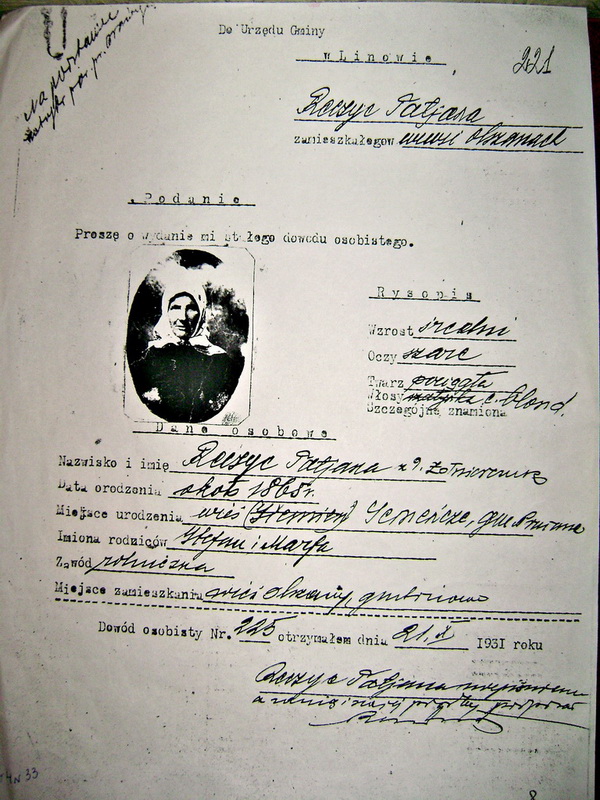 Na podstawie
Do Urzędu Gminy
w Linowie,
221
Reczyc Tatjana
zamieszkałegow wewsi Olszanach
Podanie
Proszę o wydanie mi stałego dowodu osobistego.
Rysopis
Wzrost średni
Oczy szare
Twarz pociągła
Włosy c. blond.
Szczególne znamiona
Dane osobowe
Nazwisko i imię Reczyc Tatjana z d.
Data orodzenia około 1865 r.
Miejsce urodzenia wieś
Imiona rodziców Stefan i Marfa
Zawód rolniczka
Miejsce zamieszkania wieś Olszany, gm Linowo
Dowód osobisty Nr. 225 otrzymałem dnia 21.X 1931 roku
Reczyc Tatjana niepiśmienna
8